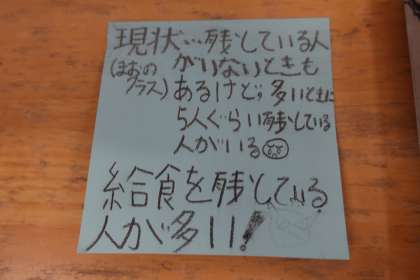 現状…残している人
(まおの がいないときも
クラス) あるけど。多いときに
5人ぐらい残している
人がいる
給食を残している
人が多い!